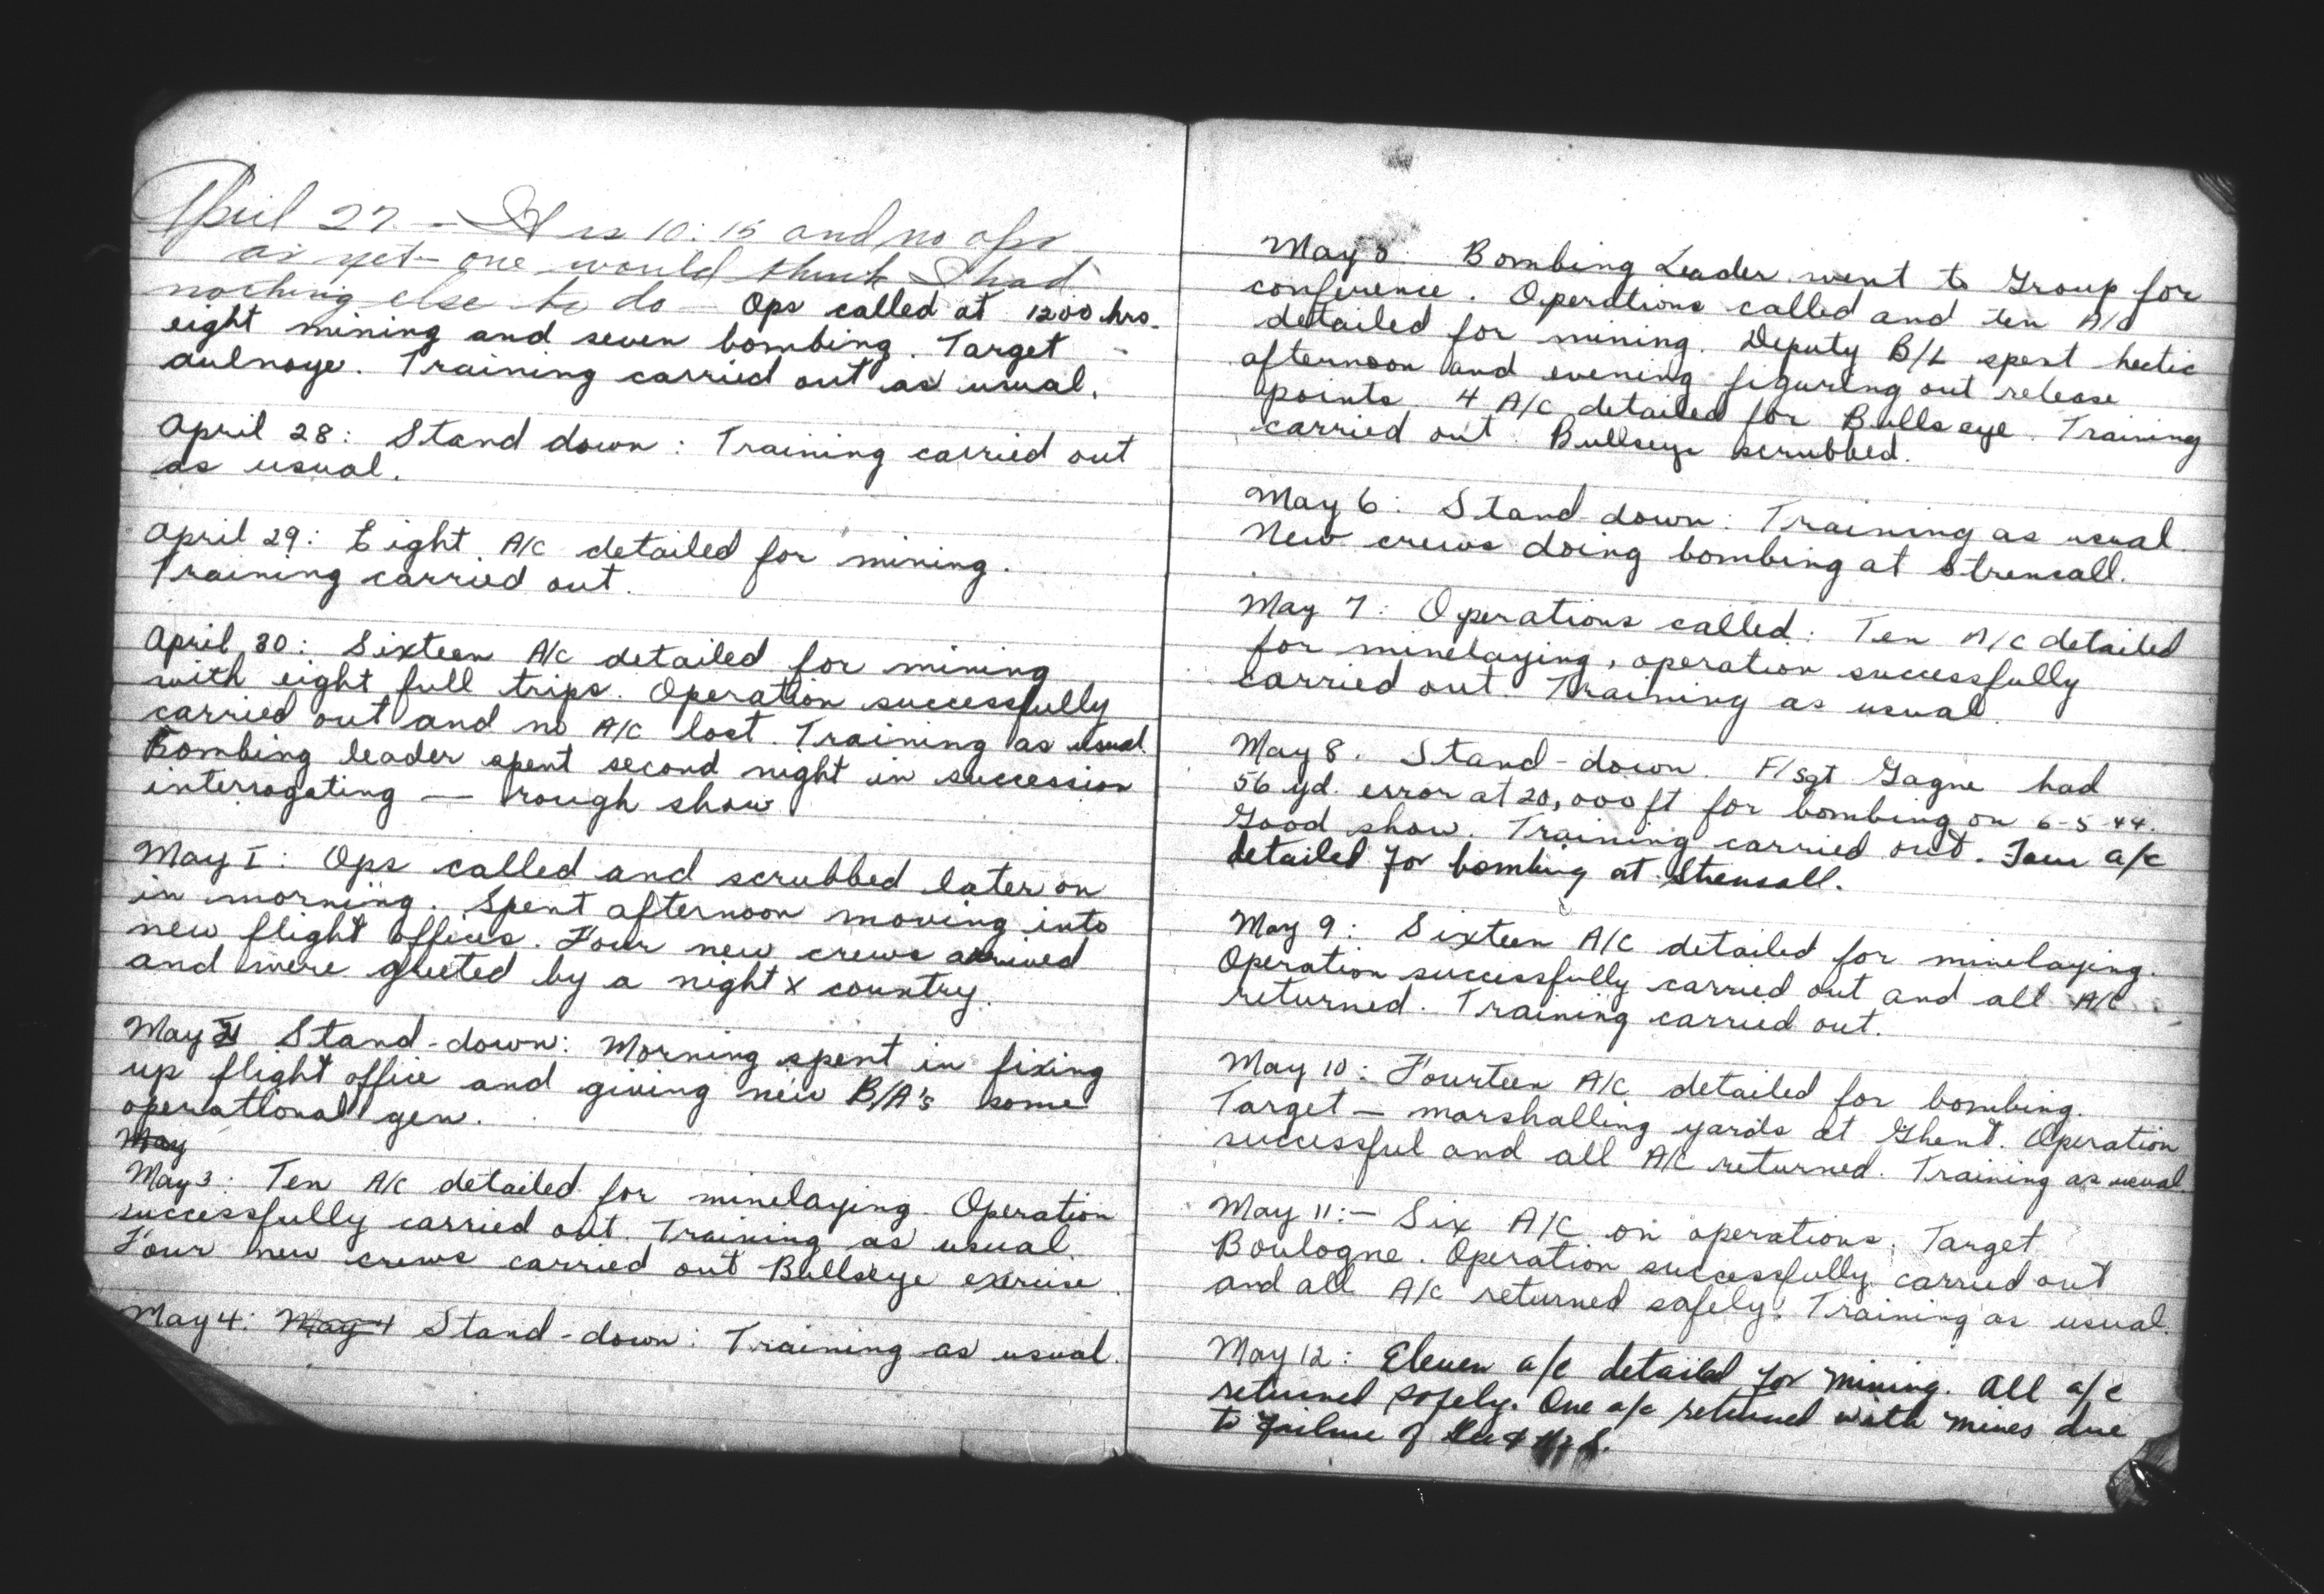 April 27. - It is 10:15 and no ops
as yet - one would think I had
nothing else to do - Ops called at 1200 hrs.
eight mining and seven bombing. Target -
aulnoye. Training carried out as usual.
April 28: Stand down: Training carried out
as usual.
April 29: Eight A/C detailed for mining.
Training carried out.
April 30: Sixteen A/C detailed for mining
with eight full trips. Operation successfully
carried out and no A/C lost. Training as usual.
Bombing leader spent second night in succession
interrogating — rough show
May I: Ops called and scrubbed later on
in morning. Spent afternoon moving into
new flight offices. Four new crews arrived
and were greeted by a night x country.
May 2 Stand-down: Morning spent in fixing
up flight office and giving new B/A's some
operational gen.
May
May 3: Ten A/C detailed for minelaying. Operation
successfully carried out. Training as usual.
Four new crews carried out Bullseye exercise.
May 4: May 4 Stand-down: Training as usual.
May 5: Bombing Leader went to Group for
conference. Operations called and ten A/C
detailed for mining. Deputy B/L spent hectic
afternoon and evening figuring out release
points. 4 A/C detailed for Bullseye. Training
carried out. Bullseye scrubbed.
May 6: Stand-down: Training as usual.
New crews doing bombing at Strensall.
May 7: Operations called: Ten A/C detailed
for minelaying, operation successfully
carried out. Training as usual.
May 8. Stand-down. F/Sgt Gagne had
56 yd. error at 20,000 ft for bombing on 6-5-44.
Good show. Training carried out. Four a/c
detailed for bombing at Strensall.
May 9: Sixteen A/C detailed for minelaying.
Operation successfully carried out and all A/C
returned. Training carried out.
May 10: Fourteen A/C detailed for bombing.
Target — marshalling yards at Ghent. Operation
successful and all A/C returned. Training as usual.
May 11:- Six A/C on operations. Target
Boulogne. Operation successfully carried out
and all A/C returned safely. Training as usual.
May 12: Eleven a/c detailed for mining. All a/c
returned safely. One a/c returned with mines due
to failure of